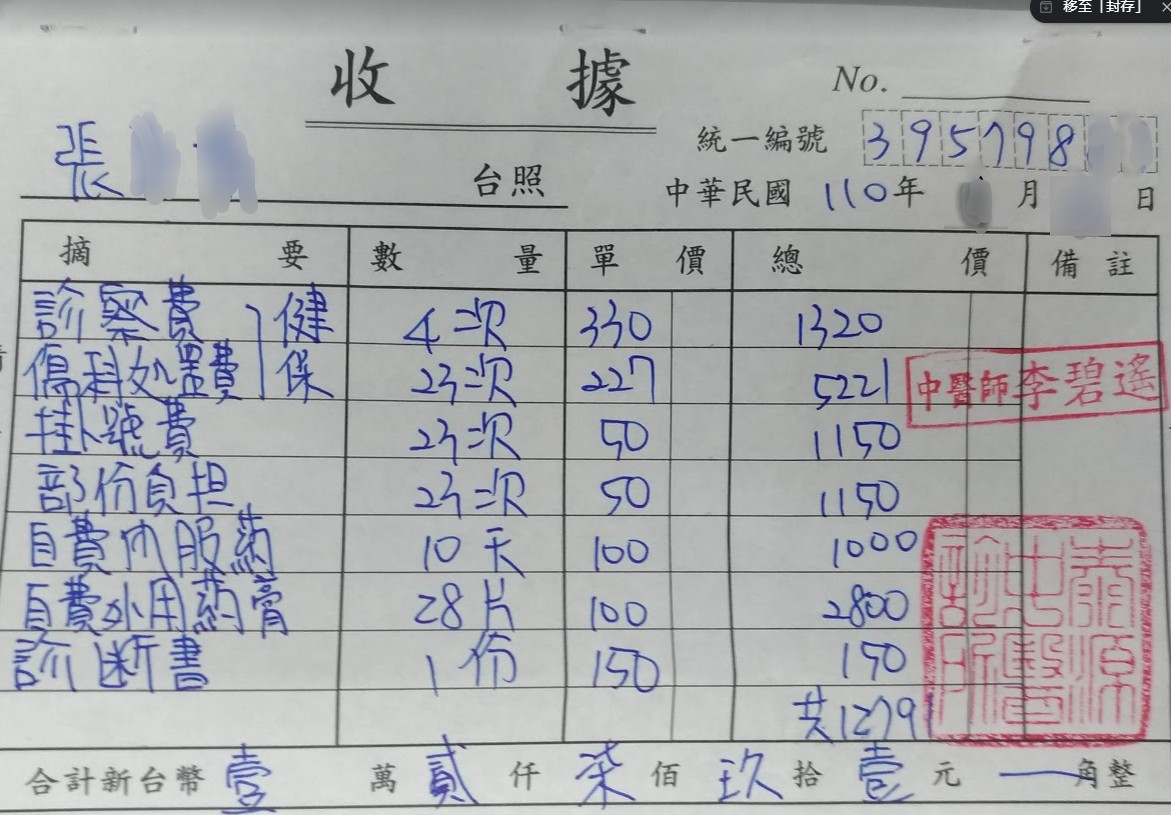 移至「封存」
收據
No.
統一編號 395798
張
台照
中華民國 110年 月 日
摘要 數量 單價 總價 備註
診察費 健 4次 330 1320
傷科处置費 保 23次 227 5221
中醫師李碧遙
挂號費 23次 50 1150
部份負担 23次 50 1150
自費內服药 10天 100 1000
自費外用药膏 28片 100 2800
診断書 1份 150 150
共1279
合計新台幣壹萬貳仟柒佰玖拾壹元一角整